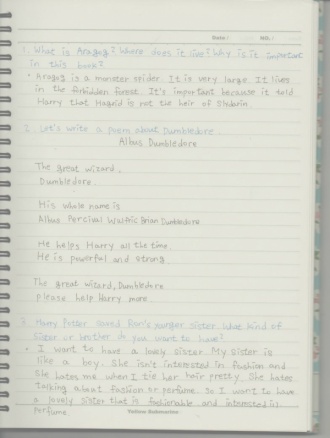 Date / No. /
1. What is Aragog? Where does it live? Why is it important
in this book?
• Aragog is a monster spider. It is very large. It lives
in the forbidden forest. It's important because it told
Harry that Hagrid is not the heir of
2. Let's write a poem about Dumbledore
Albus Dumbledore
The great wizard,
Dumbledore.
His whole name is
Albus Percival Wulfric Brian Dumbledore
He helps Harry all the time.
He is powerful and strong.
The great wizard, Dumbledore
please help Harry more.
3. Harry Potter saved Ron's younger sister. What kind of
sister or brother do you want to have?
• I want to have a lovely sister. My sister is
like a boy. She isn't interested in fashion and
she hates me when I tie her hair pretty. She hates
talking about fashion or perfume. So I want to have
a lovely sister that is fashionable and interested in
perfume
Yellow Submarine